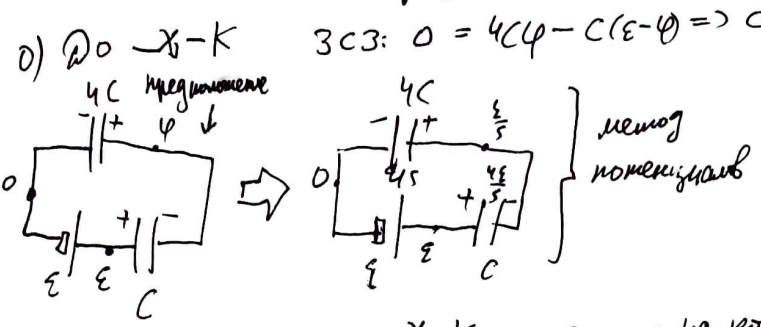 0) До -X-К
ЗСЗ: 0 = 4Cφ - C(ε-φ) => C
4C
предположение
- +
φ
0
+ -
ε
ε
C
4C
- +
ε/5
0
+ -
4ε/5
ε
ε
C
метод
потенциалов